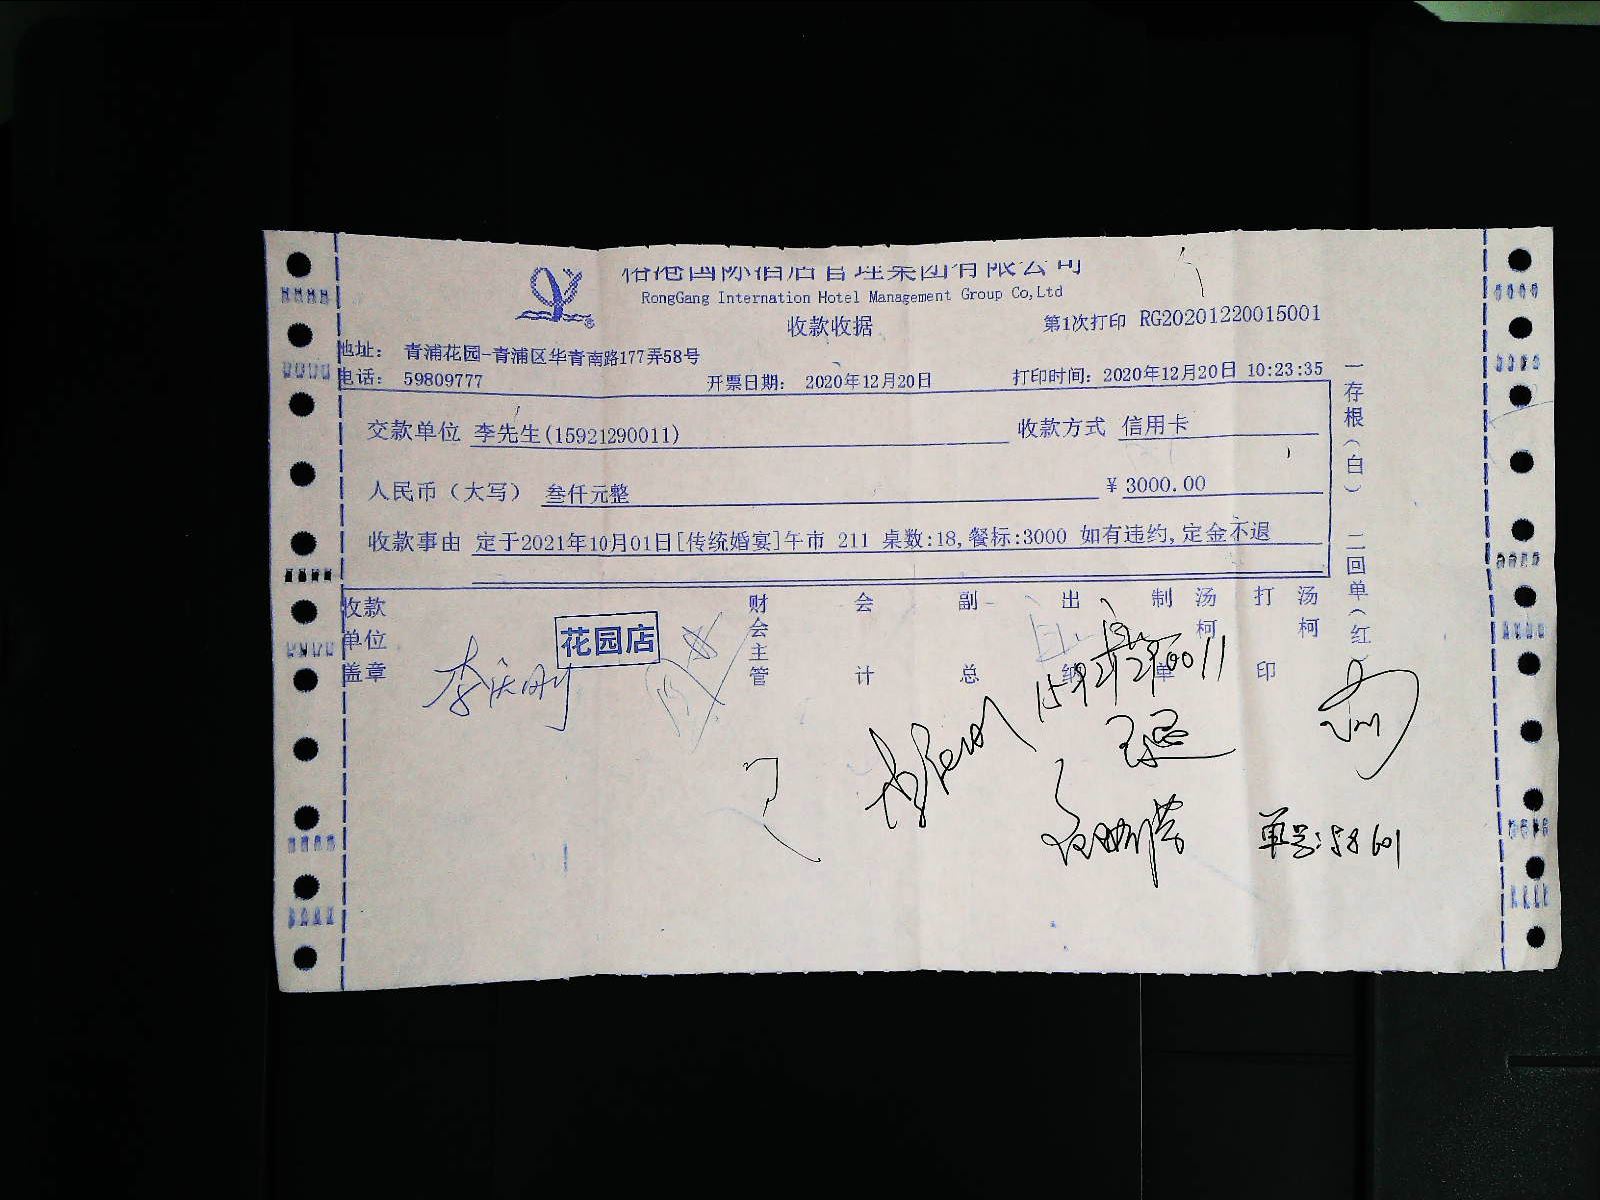 国际酒店管理集团有限公司
RongGang Internation Hotel Management Group Co,Ltd
收款收据
第1次打印 RG20201220015001
地址： 青浦花园-青浦区华青南路177弄58号
电话： 59809777 开票日期： 2020年12月20日 打印时间：2020年12月20日 10:23:35
交款单位 李先生(15921290011) 收款方式 信用卡
人民币（大写） 叁仟元整 ¥ 3000.00
收款事由 定于2021年10月01日[传统婚宴]午市 211 桌数:18,餐标:3000 如有违约,定金不退
一存根（白） 二回单（红）
收款单位盖章
花园店
财会主管 会计 副总 出纳 制单 汤柯 打印 汤柯
15921290011
单号:58601